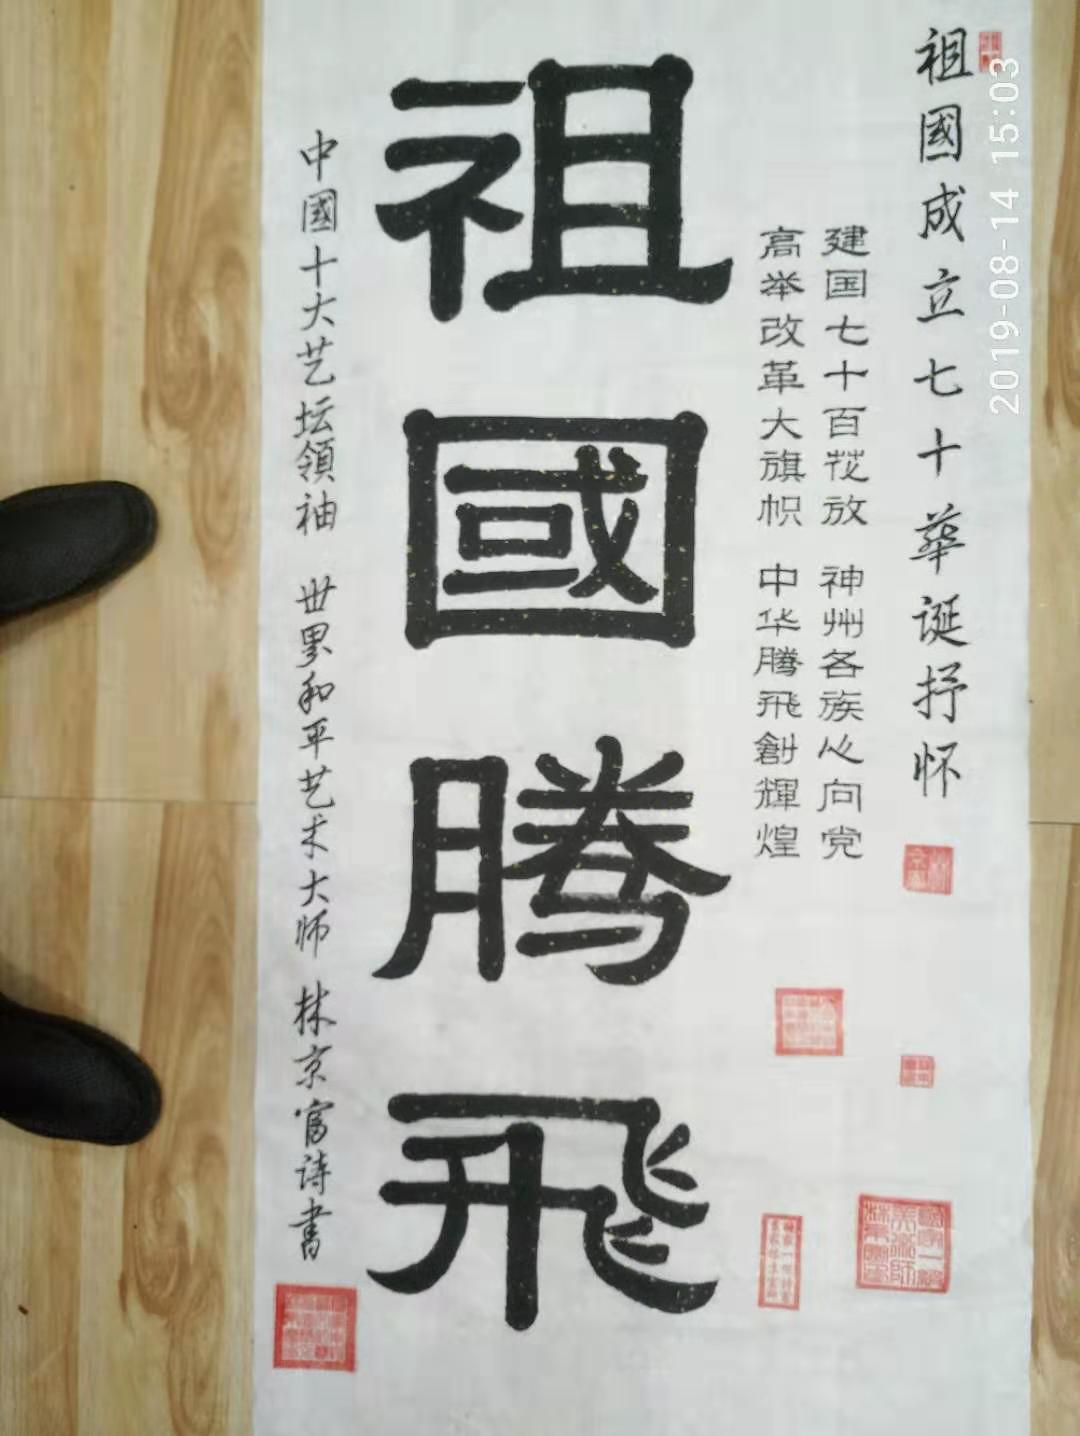 祖國成立七十華誕抒怀
建国七十百花放 神州各族心向党
高举改革大旗帜 中华腾飛創輝煌
祖國腾飛
中國十大艺坛領袖 世界和平艺术大师 林京富诗書
2019-08-14 15:03